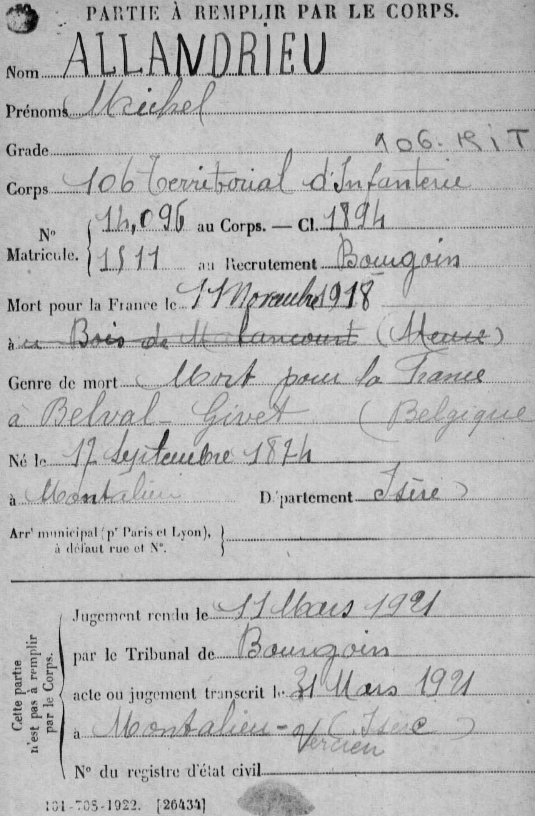 PARTIE À REMPLIR PAR LE CORPS.
Nom ALLANDRIEU
Prénoms Michel
Grade 106. RIT
Corps 106 Territorial d'Infanterie
N° Matricule. 14,096 au Corps. — Cl. 1894
1511 au Recrutement Bourgoin
Mort pour la France le 11 Novembre 1918
à u Bois de Malancourt (Meuse)
Genre de mort Mort pour la France
a Belval - Givet (Belgique
Né le 17 Septembre 1874
à Montalieu Département Isère)
Arrt municipal (pr Paris et Lyon),
à défaut rue et N°.
Cette partie n'est pas à remplir par le Corps.
Jugement rendu le 11 Mars 1921
par le Tribunal de Bourgoin
acte ou jugement transcrit le 31 Mars 1921
à Montalieu - Vercieu (Isère)
N° du registre d'état civil
101-708-1922. [26434]